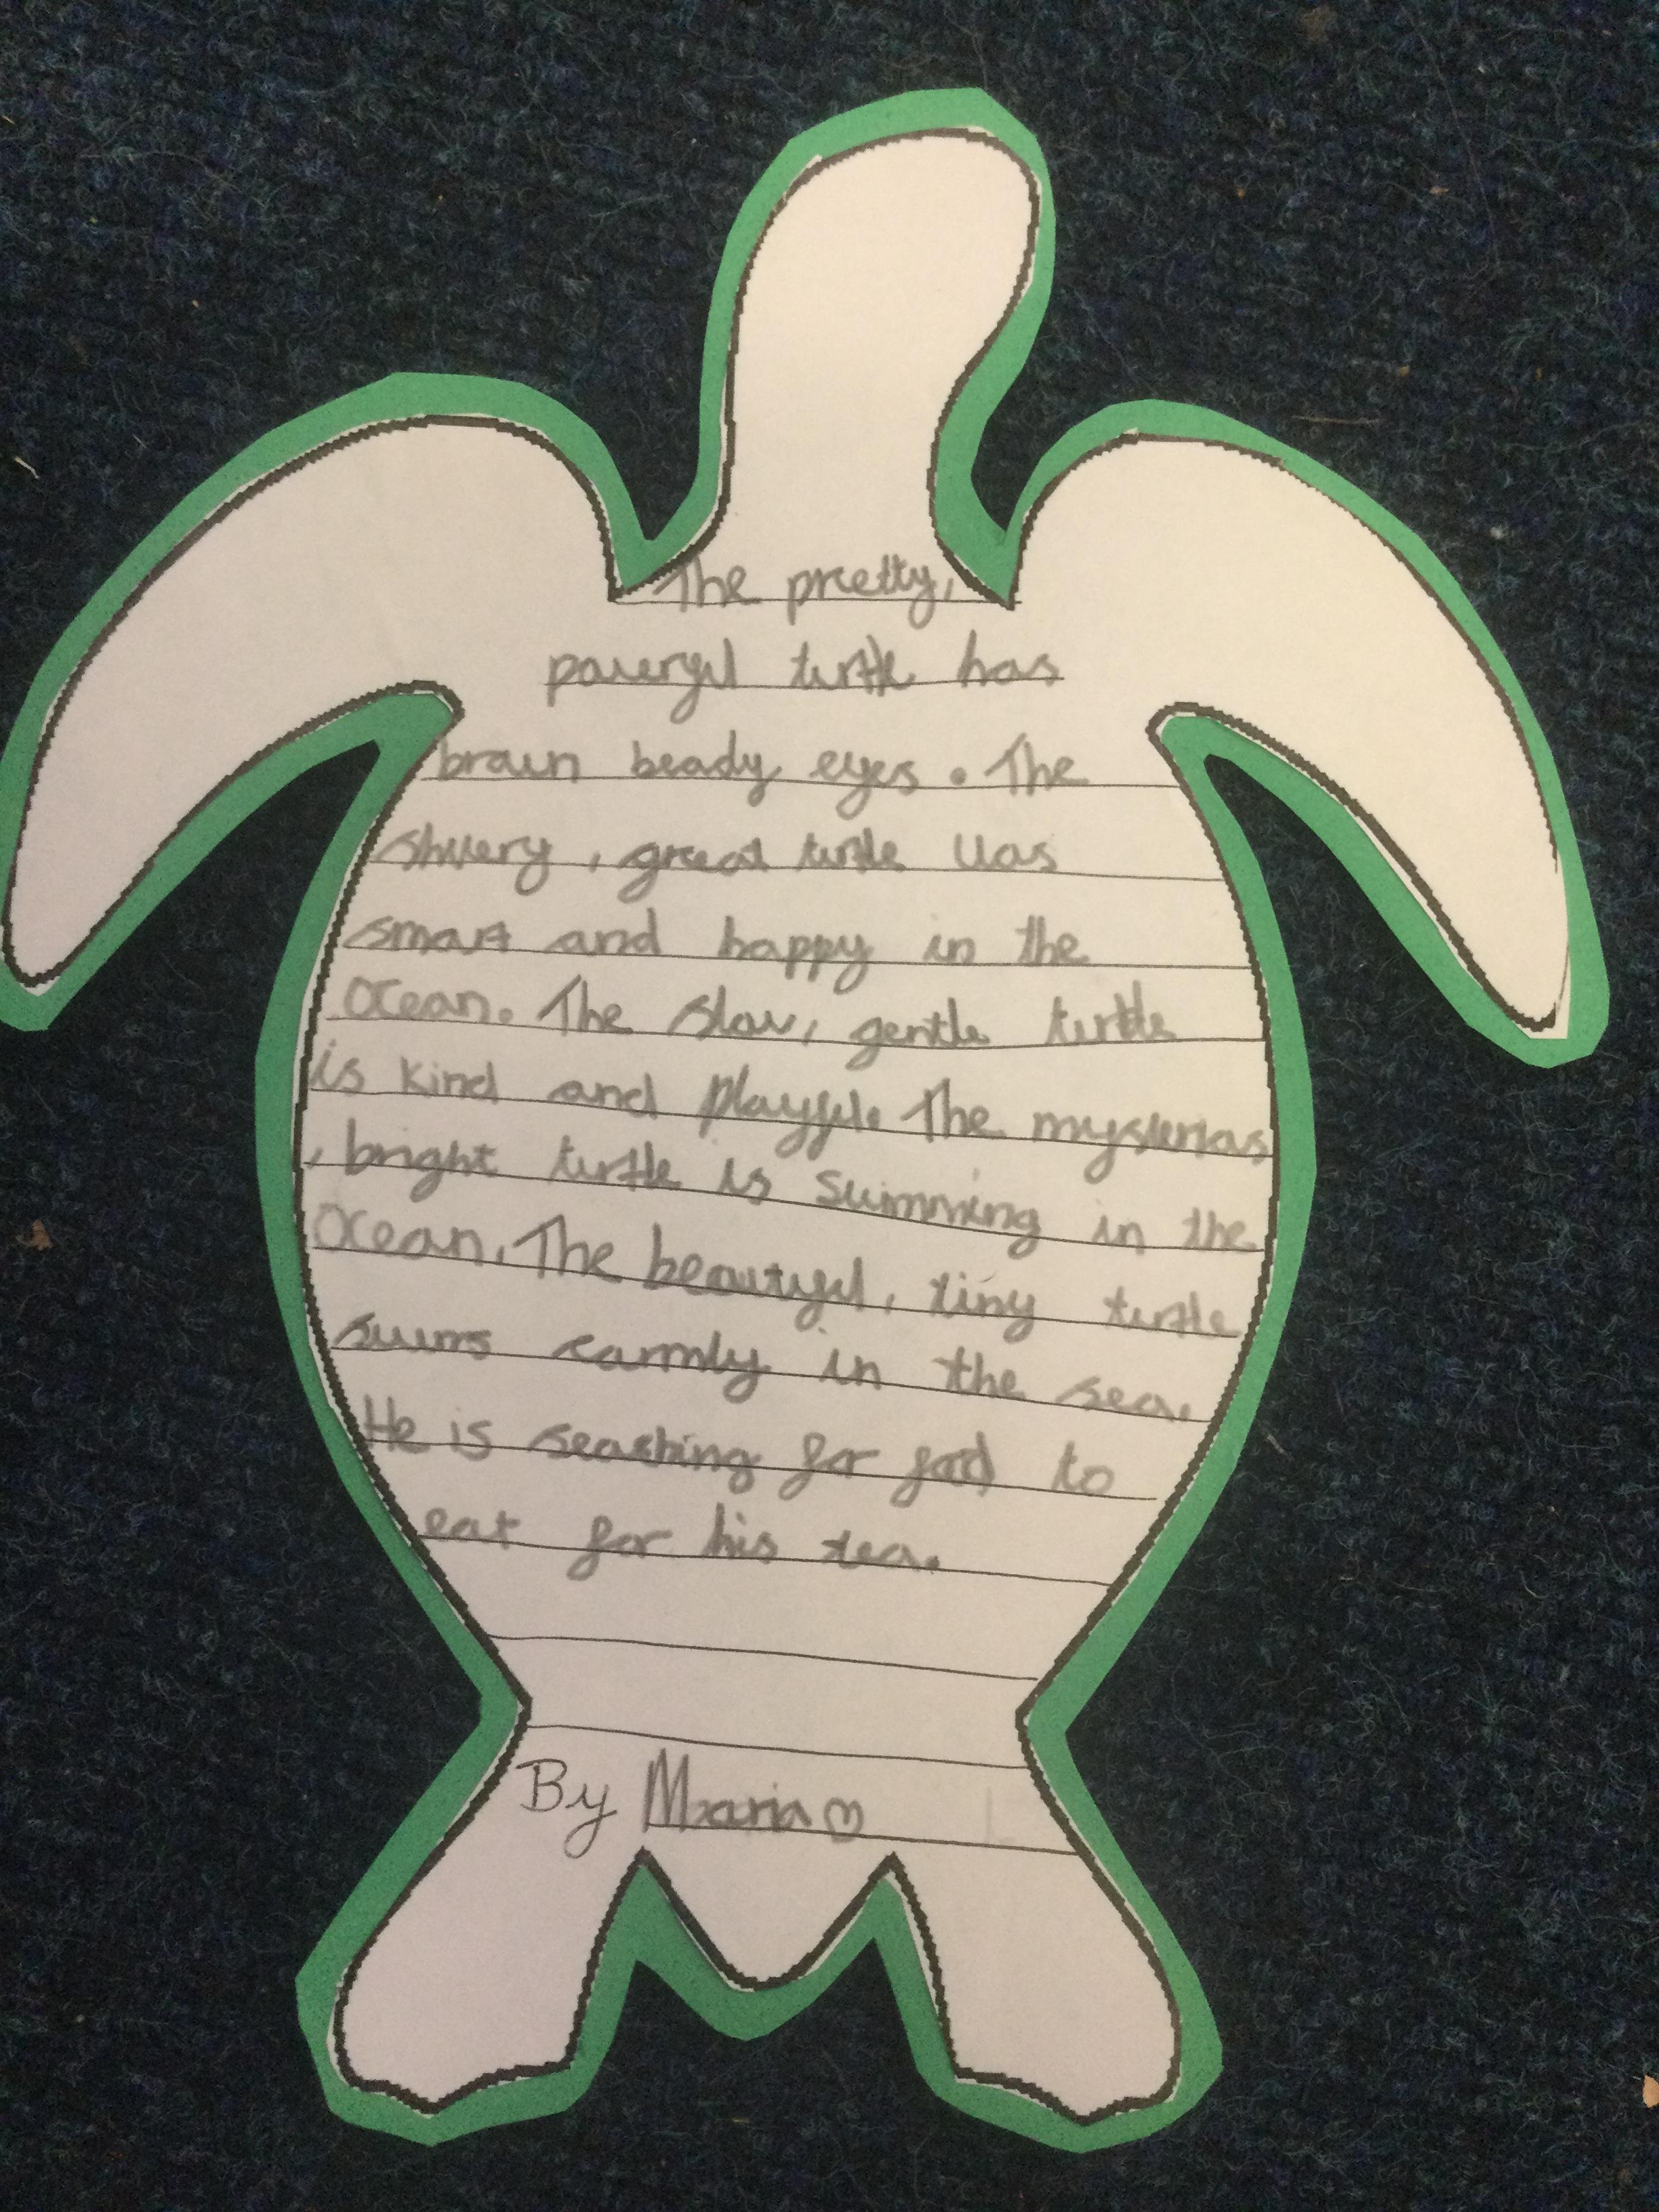 The pretty,
powerful turtle has
brain beady eyes. The
shivery, great turtle Uas
smart and happy in the
Ocean. The slow, gentle turtle
is kind and playful. The mysterias
, bright turtle is swimming in the
Ocean. The beautyful, tiny turtle
swims carmly in the sea.
He is searhing for food to
eat for his tea.
By Maria